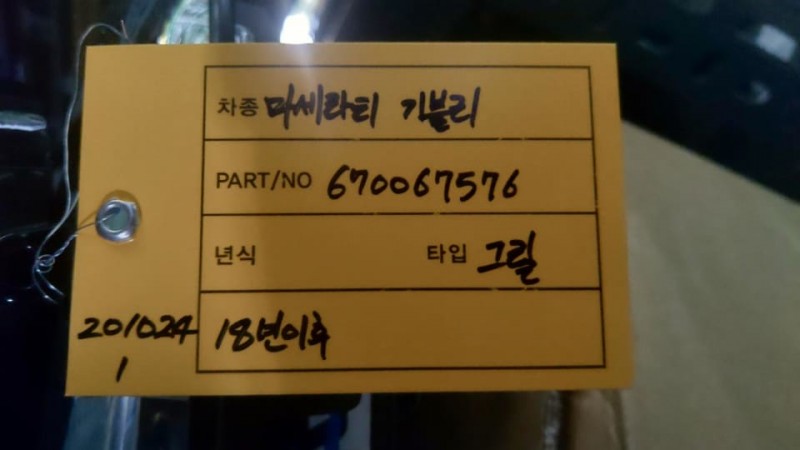 차종 마세라티 기블리
PART/NO 670067576
년식 타입 그릴
201024 18년이후
1